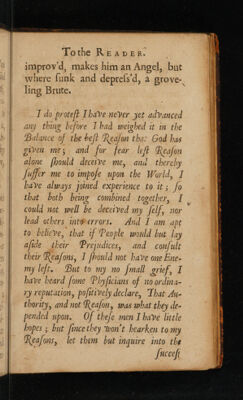 To the READER.
improv'd, makes him an Angel, but
where sunk and depress'd, a grove-
ling Brute.
I do protest I have never yet advanced
any thing before I had weighed it in the
Balance of the best Reason that God has
given me; and for fear lest Reason
alone should deceive me, and thereby
suffer me to impose upon the World, I
have always joined experience to it; so
that both being combined together, I
could not well be deceived my self, nor
lead others into errors. And I am apt
to believe, that if People would but lay
aside their Prejudices, and consult
their Reasons, I should not have one Ene-
my left. But to my no small grief, I
have heard some Physicians of no ordina-
ry reputation, positively declare, That Au-
thority, and not Reason, was what they de-
pended upon. Of these men I have little
hopes; but since they won't hearken to my
Reasons, let them but inquire into the
success